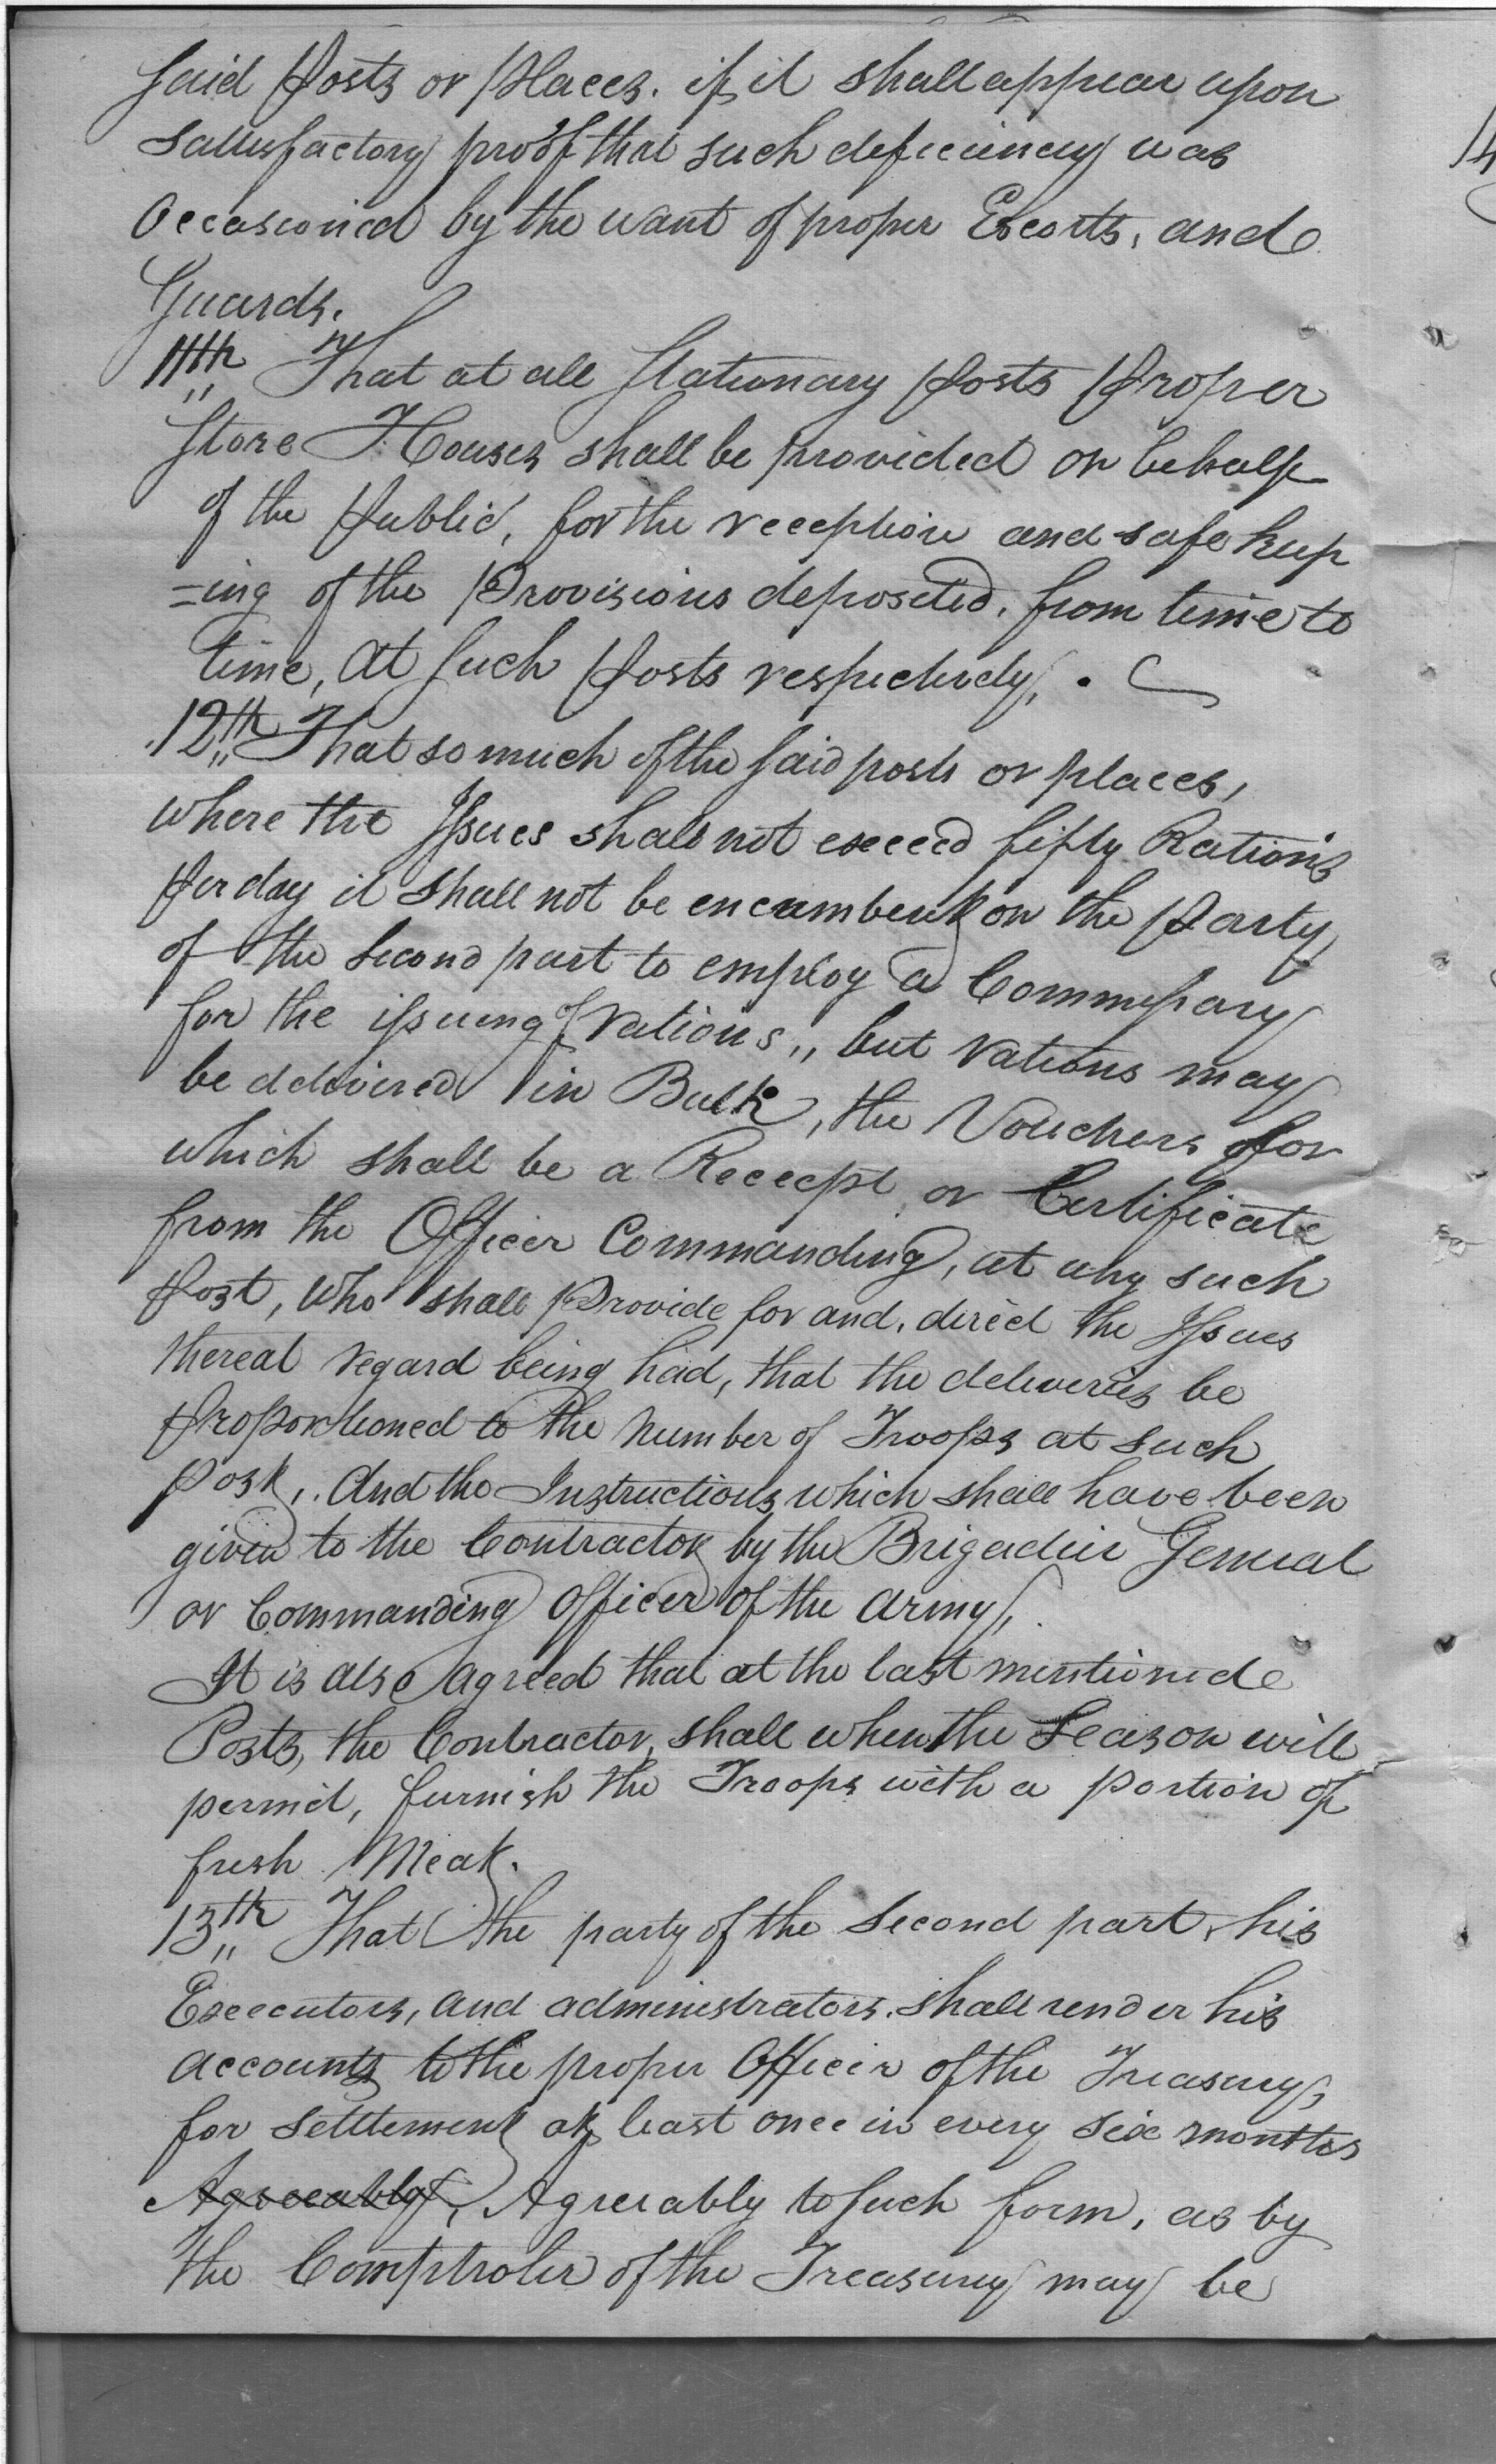 said Posts or Places. if it shall appear upon
Satisfactory proof that such deficiency was
Occasioned by the want of proper Escorts, and
Guards.
11th That at all Stationary Posts Proper
Store Houses shall be provided on behalf
of the Public, for the reception and safe keep
=ing of the Provisions deposited, from time to
time, at such Posts respectively, .
12th That so much of the said posts or places,
where the Issues shall not exceed fifty Rations
Per day it shall not be encumbent on the Party
of the Second part to employ a Commissary
for the issuing of rations,, but rations may
be delivered in Bulk, the Vouchers for
which shall be a Receept or Certificate
from the Officer Commanding, at any such
Post, who shall Provide for and, direct the Issues
thereat regard being had, that the deliveries be
Proportioned to the Number of Troops at such
Post,. And the Instructions which shall have been
given to the Contractor by the Brigadier General
or Commanding Officer of the Army,.
It is also agreed that at the last mentioned
Posts, the Contractor, shall when the Season will
permit, furnish the Troops with a portion of
fresh Meat.
13th That the party of the Second part, his
Executors, and administrators. shall render his
accounts to the proper Officer of the Treasury,
for Settlement at least once in every Six months
Agreeably, Agreeably to such form, as by
the Comptroler of the Treasury may be